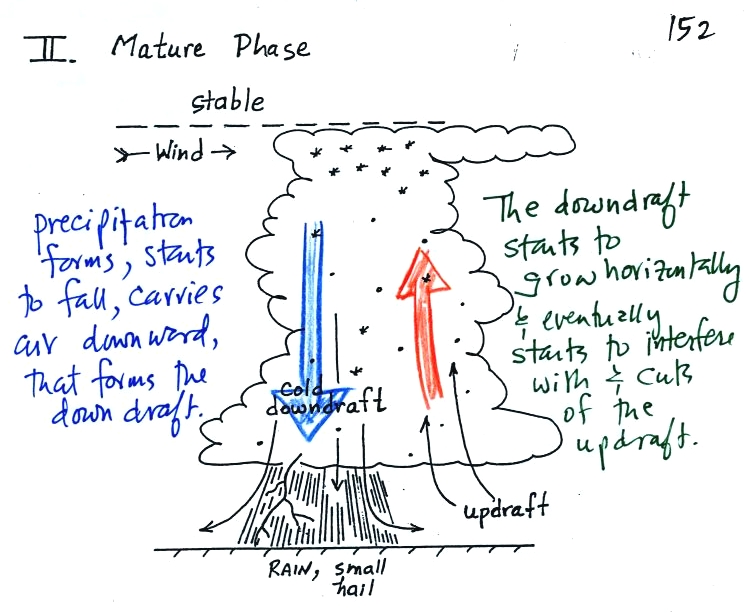 152
II. Mature Phase
stable
Wind
precipitation
forms, starts
to fall, carries
air downward,
that forms the
down draft.
The downdraft
starts to
grow horizontally
& eventually
starts to interfere
with & cuts
of the
updraft.
Cold
downdraft
updraft
RAIN, small
hail